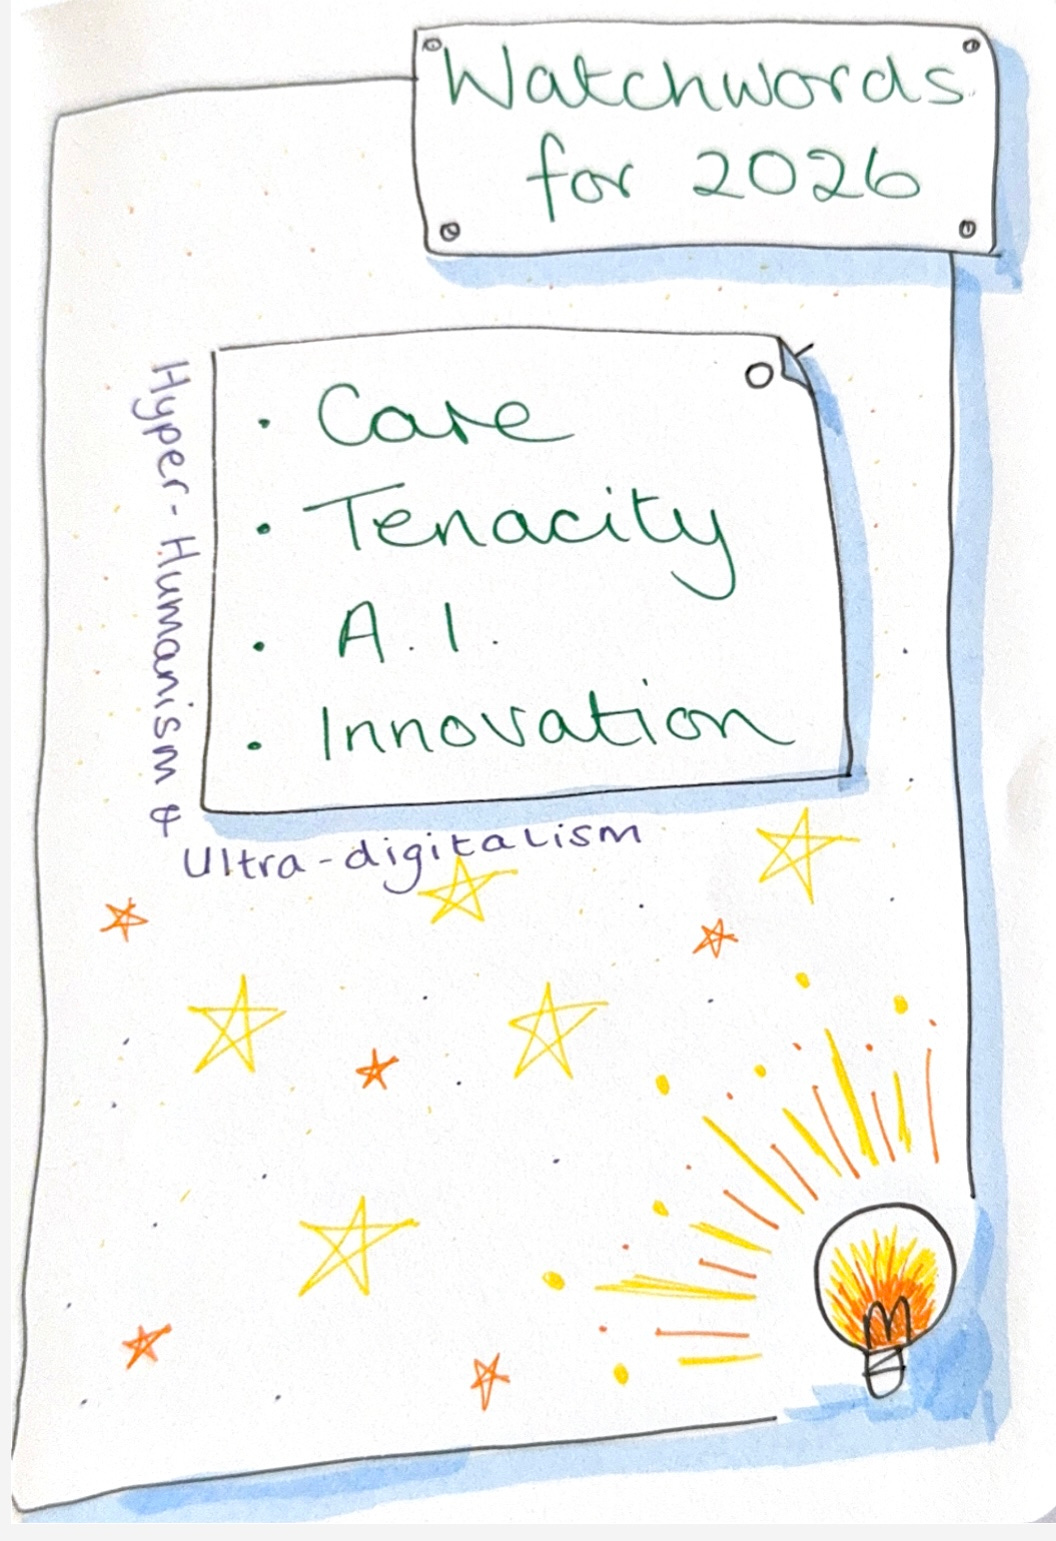 Watchwords
for 2026
• Care
• Tenacity
• A.I.
• Innovation
Hyper-Humanism &
Ultra-digitalism